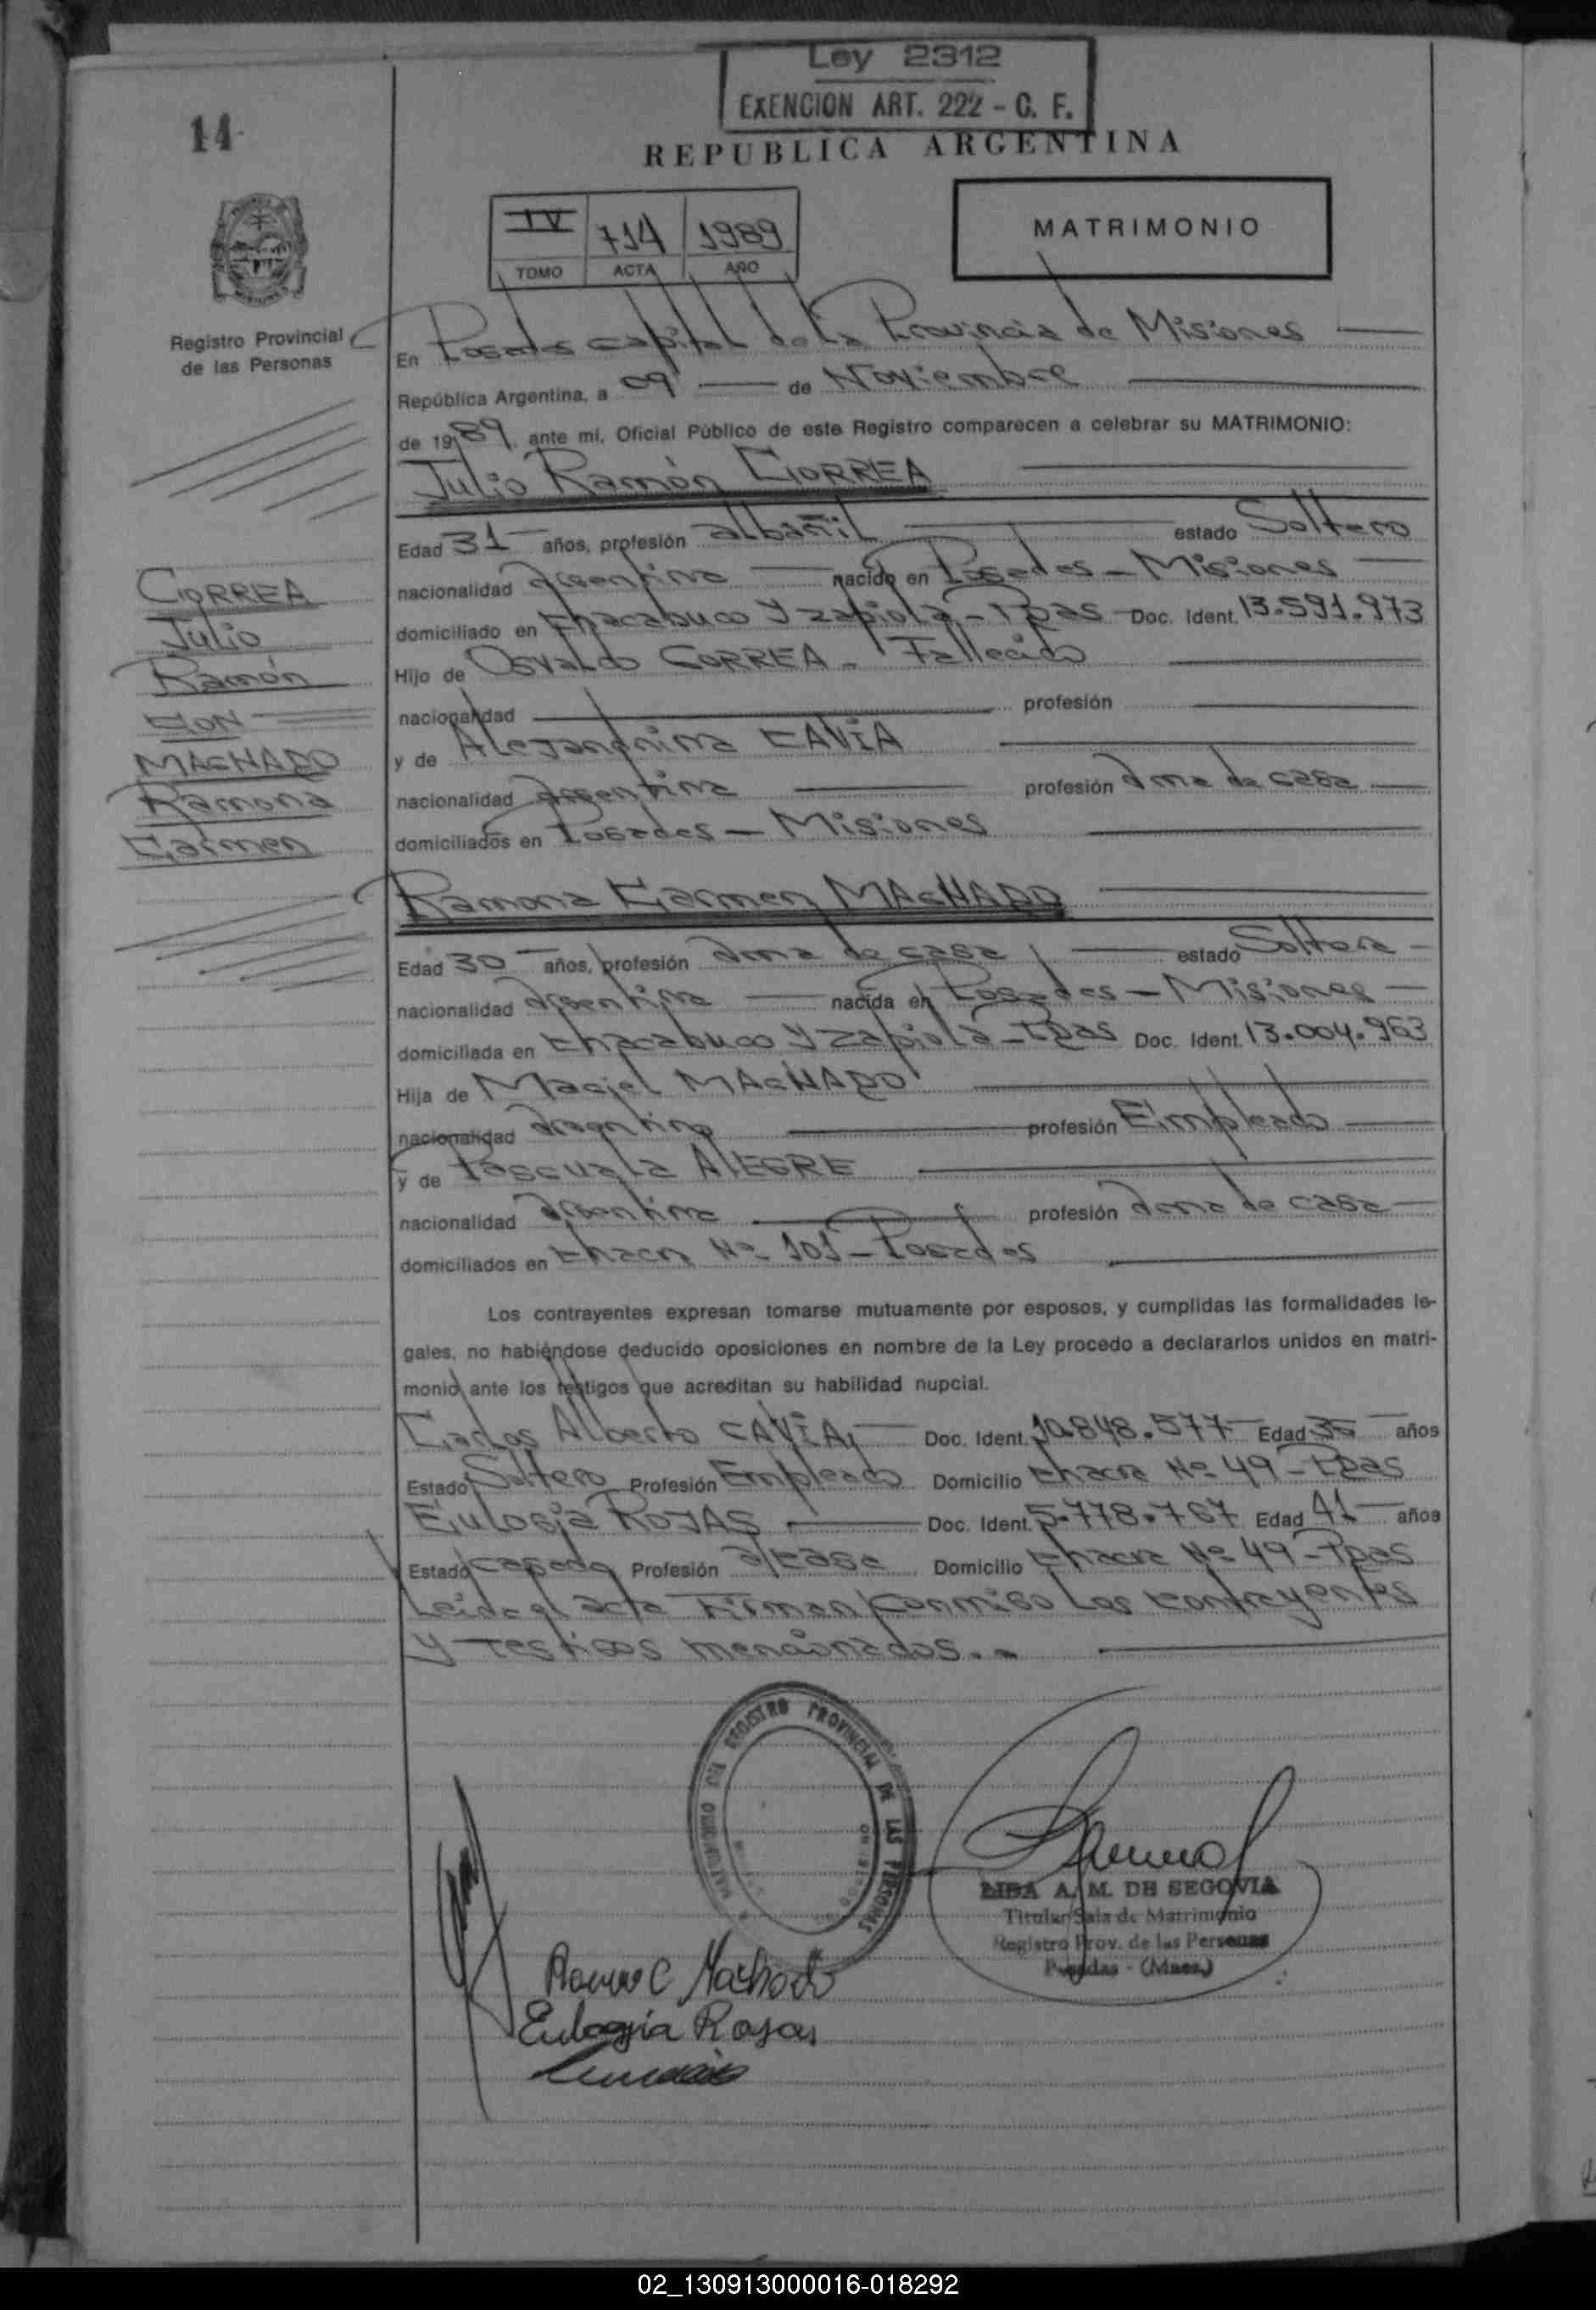 Ley 2312
EXENCION ART. 222 - C. F.
14
REPUBLICA ARGENTINA
IV 714 1989
TOMO ACTA AÑO
MATRIMONIO
Registro Provincial
de las Personas
En Posadas capital de la Provincia de Misiones
República Argentina, a 09 de Noviembre
de 1989, ante mí, Oficial Público de este Registro comparecen a celebrar su MATRIMONIO:
Julio Ramón CORREA
Edad 31 años, profesión albañil estado Soltero
nacionalidad argentina nacido en Posadas - Misiones
domiciliado en Chacabuco y Zapiola - Pdas Doc. Ident. 13.591.973
Hijo de Osvaldo CORREA - Fallecido
nacionalidad profesión
y de Alejandrina CAVIA
nacionalidad argentina profesión ama de casa
domiciliados en Posadas - Misiones
CORREA
Julio
Ramón
CON
MACHADO
Ramona
Carmen
Ramona Carmen MACHADO
Edad 30 años, profesión ama de casa estado Soltera
nacionalidad argentina nacida en Posadas - Misiones
domiciliada en Chacabuco y Zapiola - Pdas Doc. Ident. 13.004.963
Hija de Maciel MACHADO
nacionalidad argentino profesión Empleado
y de Pascuala ALEGRE
nacionalidad argentina profesión ama de casa
domiciliados en Chacra Nº 101 - Posadas
Los contrayentes expresan tomarse mutuamente por esposos, y cumplidas las formalidades le-
gales, no habiéndose deducido oposiciones en nombre de la Ley procedo a declararlos unidos en matri-
monio ante los testigos que acreditan su habilidad nupcial.
Carlos Alberto CAVIA, Doc. Ident. 10.848.577 Edad años
Estado Soltero Profesión Empleado Domicilio Chacra Nº 49 - Pdas
Eulogia ROJAS Doc. Ident. 5.778.767 Edad 41 años
Estado casada Profesión a/casa Domicilio Chacra Nº 49 - Pdas
Leida el acta Firman conmigo Los contrayentes
y testigos mencionados..
REGISTRO PROVINCIAL DE LAS PERSONAS
LIBA A. M. DE SEGOVIA
Titular Sala de Matrimonio
Registro Prov. de las Personas
Posadas - (Mnes.)
Ramona C Machado
Eulogia Rojas
02_130913000016-018292